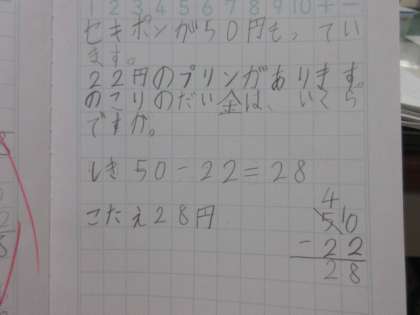 1 2 3 4 5 6 7 8 9 10 + −
セキポンが50円もってい
ます。
22円のプリンがあります。
のこりのだい金は、いくら
ですか。
しき 50−22=28
こたえ28円
4
5 10
−22
28